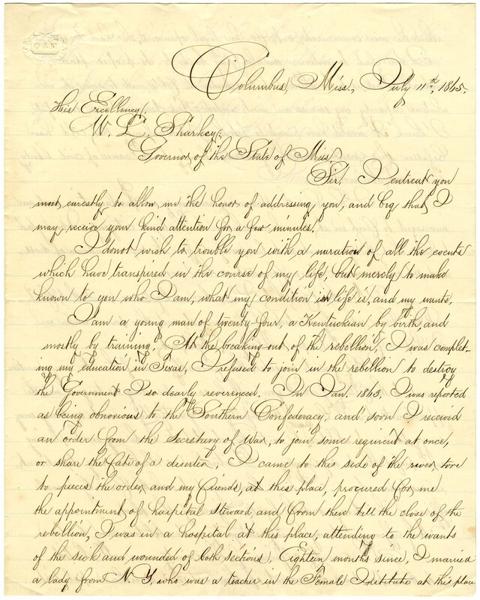 Columbus, Miss, July 11th, 1865.
His Excellency,
W. L. Sharkey,
Governor of the State of Miss,
Sir, I entreat you
most earnestly to allow me the honor of addressing you, and beg that I
may receive your kind attention for a few minutes.
I do not wish to trouble you with a naration of all the events
which have transpired in the course of my life, but merely to make
known to you who I am, what my condition in life is, and my wants.
I am a young man of twenty-four, a Kentuckian by birth, and
mostly by training. At the breaking out of the rebellion, I was complet-
ing my education in Texas, I refused to join in the rebellion to destroy
the Government I so dearly reverenced. In Jan. 1863, I was reported
as being obnoxious to the Southern Confederacy, and soon I received
an order from the Secretary of War, to join some regiment at once,
or share the fate of a deserter. I came to this side of the river, tore
to pieces the order, and my friends, at this place, procured for me
the appointment of hospital Steward, and from then till the close of the
rebellion, I was in a hospital at this place, attending to the wants
of the sick and wounded of both sections. Eighteen months since, I married
a lady from N. Y. who was a teacher in the Female Institute at this place